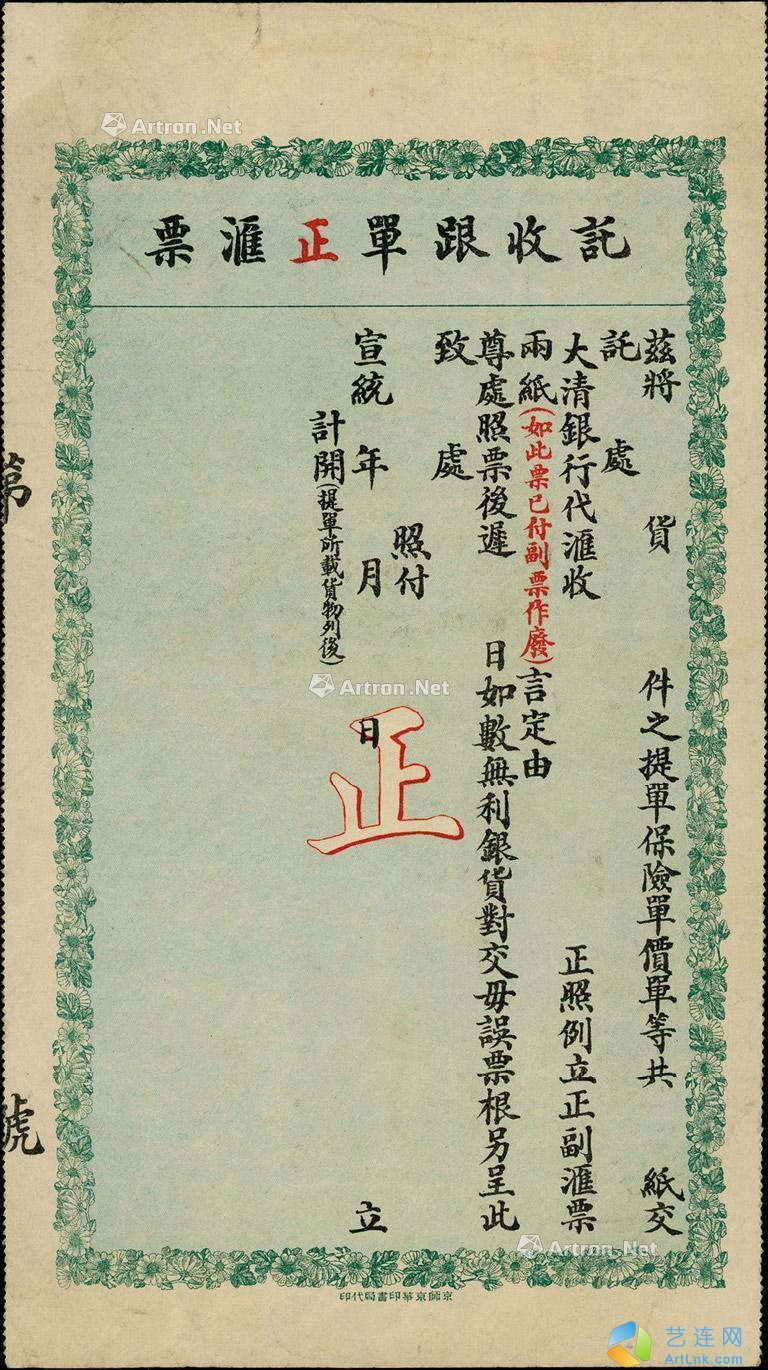 託收跟單正滙票
茲將 貨 件之提單保險單價單等共 紙交
託 處
大清銀行代滙收 正照例立正副滙票
兩紙(如此票已付副票作廢)言定由
尊處照票後遲 日如數無利銀貨對交毋誤票根另呈此
致 處
照付
宣統 年 月 日 立
計開(提單所載貨物列後)
正
第 號
京師京華印書局代印
Artron.Net
Artron.Net
Artron.Net
艺连网
ArtLnk.com